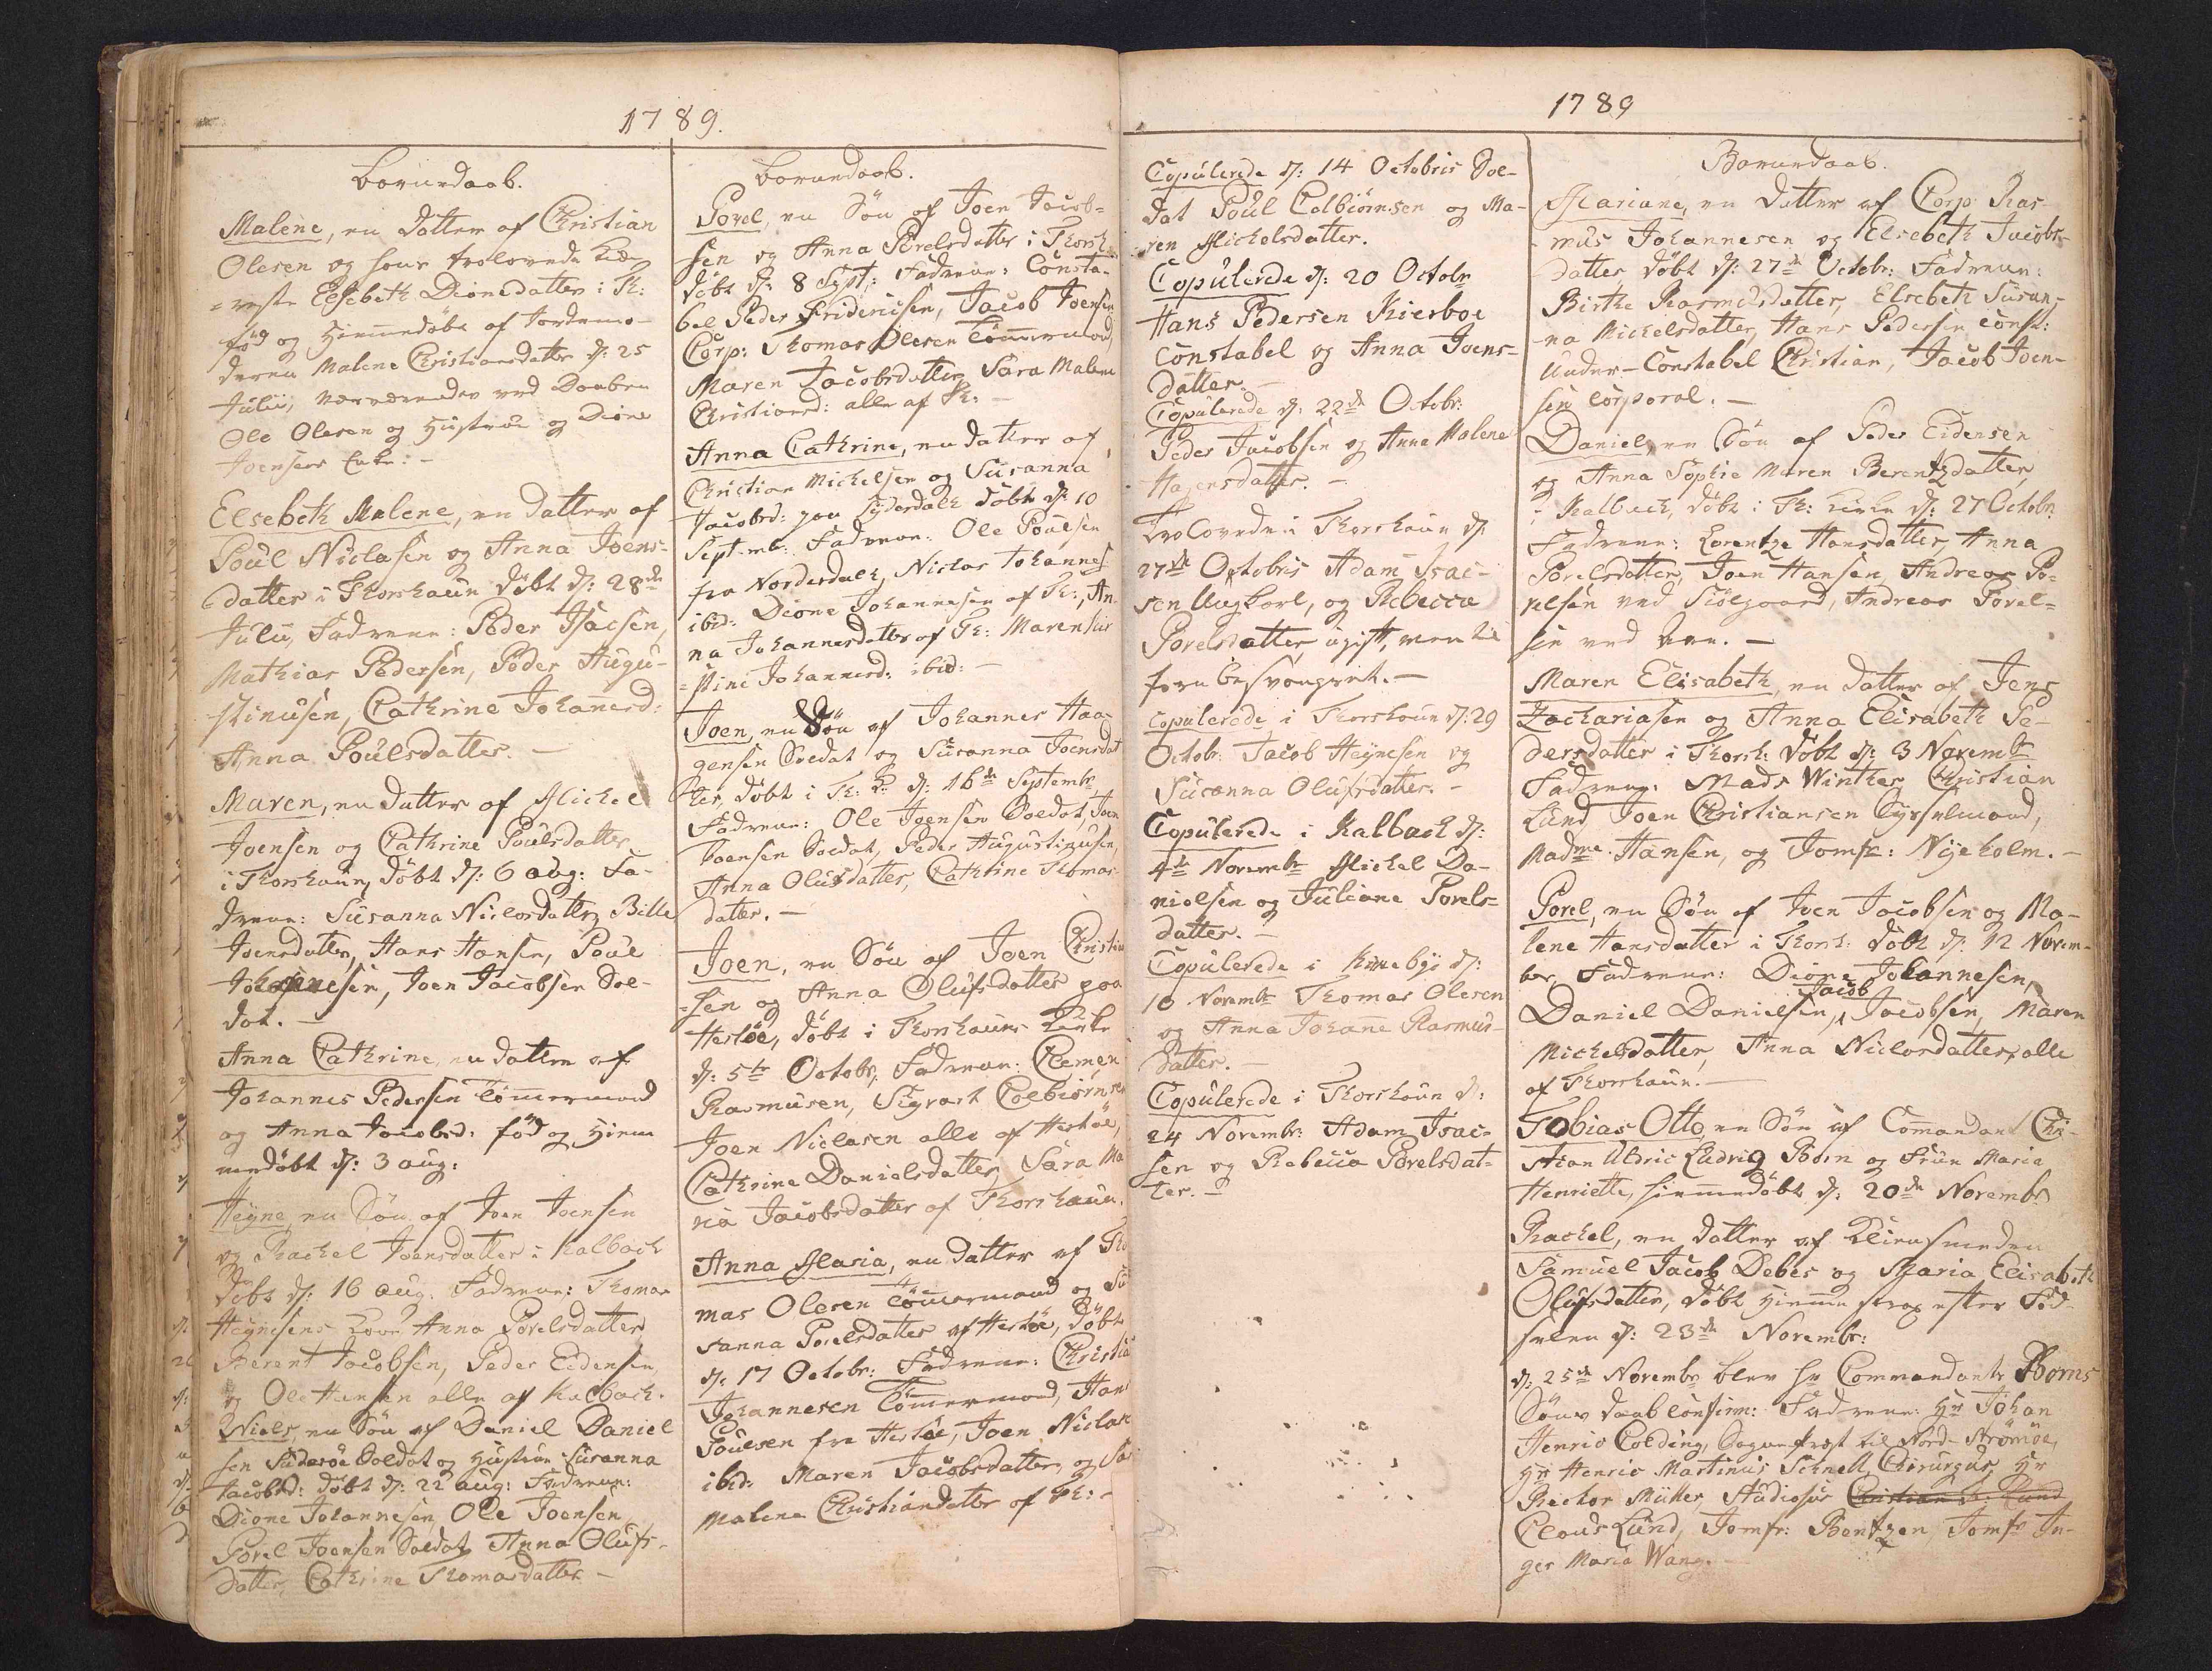 1789.
Börnedaab.
Malene, en Datter af Christian
Olesen og hans trolovede Kiæ-
=reste Elsebeth Dionedatter i Th:
fød og Hiemmedöbt af Jordemo-
deren Malene Christiansdatter d: 25
Julii, nærværendes ved Daaben
Ole Olesen og Hustrue og Dione
Joensens Enke. -
Elsebeth Malene, en Datter af
Poul Niclasen og Anna Joens-
datter i Thorshaun döbt d: 28de
Julii, Fadrene: Peder Isacsen,
Mathias Pedersen, Peder Augu-
stinusen, Cathrine Johannesd:
Anna Poulsdatter. -
Maren, en Datter af Michel
Joensen og Cathrine Poulsdatter
i Thorshaun, döbt d: 6 aug: Fa-
drene: Susanna Niclasdatter, Bille
Joensdatter, Hans Hansen, Poul
Johannesen, Joen Jacobsen Sol-
dat. -
Anna Cathrine, en datter af
Johannes Pedersen Tömmermand
og Anna Jacobsd: fød og Hiem
medöbt d: 3 aug:
Heyne, en Sön af Joen Joensen
og Rachel Joensdatter i Kalbach
döbt d: 16 aug. Fadrene: Thomas
Heynesens Kone Anna Povelsdatter
Berent Jacobsen, Peder Eidensen
og Ole Hansen alle af Kalbach.
Niels, en Sön af Daniel Daniel
sen Suderöe Soldat og Hustrue Susanna
Jacobsd: döbt d: 22 aug: Fadrene:
Dione Johannesen, Ole Joensen
Povel Joensen Soldat, Anna Olufs-
datter, Cathrine Thomasdatter -
Börnedaab.
Povel, en Sön af Joen Jacob=
sen og Anna Povelsdatter i Thorsh:
döbt d: 8 Sept: Fadrene: Consta-
bel Peder Fridericsen, Jacob Joensen
Corp: Thomas Olesen Tömmermand,
Maren Jacobsdatter, Sara Malene
Christiansd: alle af Th: -
Anna Cathrine, en datter af
Christian Michelsen og Susanna
Jacobsd: paa Syderdalh döbt d: 10
Septembr: Fadrene: Ole Poulsen
fra Norderdalh, Niclas Johannes
ibid: Dione Johannesen af Th:, An-
na Johannesdatter af Th: Maren Au
=stine Johannesd: ibid: -
Joen, en Sön af Johannes Haa-
gensen Soldat og Susanna Joensdat
ter, döbt i Th: K: d: 16de Septembr
Fadrene: Ole Joensen Soldat, Joen
Joensen Soldat, Peder Augustinusen,
Anna Olusdatter, Cathrine Thomas-
datter. -
Joen, en Sön af Joen Christian
=sen og Anna Olufsdatter paa
Hestöe, döbt i Thorshauns Kirke
d: 5te Octobr, Fadrene: Clemen
Rasmusen, Sigvart Colbiörnsen
Joen Niclasen alle af Hestöe,
Cathrine Danielsdatter, Sara Ma
ria Jacobsdatter af Thorshaun.
Anna Maria, en datter af Tho
mas Olesen Tömmermand og Su
sanna Povelsdatter af Hestöe, döbt
d: 17 Octobr: Fadrene: Christia
Johannesen Tömmermand, Hans
Poulsen fra Hestöe, Joen Niclase
ibid: Maren Jacobsdatter, og Sar
Malena Christiansdatter af Th: -
1789
Copulerede d: 14 Octobris Sol-
dat Poul Colbiörnsen og Ma-
ren Michelsdatter.
Copulerede d: 20 Octobr
Hans Pedersen Kierboe
Constabel og Anna Joens-
datter. -
Copulerede d: 22de Octobr:
Peder Jacobsen og Anna Malene
Hagensdatter. -
Trolovede i Thorshaun d:
27de Octobris Adam Isac-
sen Ungkarl, og Rebecca
Povelsdatter, ugift, men til
forn besvangret. -
Copulerede i Thorshaun d: 29
Octobr: Jacob Heynesen og
Susanna Olufsdatter. -
Copulerede i Kalbach d:
4de Novembr Michel Da-
nielsen og Juliane Povels-
datter. -
Copulerede i Kirkebye d:
10 Novembr Thomas Olesen
og Anna Johanne Rasmus-
datter. -
Copulerede i Thorshaun d:
24 Novembr: Adam Isac-
sen og Rebecca Povelsdat-
ter. -
Börnedaab.
Mariane, en Datter af Corp: Ras-
mus Johannesen og Elsebeth Jacobs-
datter döbt d: 27de Octobr: Fadrene:
Birthe Rasmusdatter, Elsebeth Susan-
na Michelsdatter, Hans Pedersen Const:
Under-Constabel Christian, Jacob Joen-
sen Corporal. -
Daniel, en Sön af Peder Eidensen
og Anna Sophie Maren Berentzdatter,
i Kalbach, döbt i Th: Kirke d: 27 Octobr:
Fadrene: Lorentze Hansdatter, Anna
Povelsdatter, Joen Hansen, Andreas Po-
velsen ved Siölgaard, Andreas Povel-
sen ved Aae. -
Maren Elisabeth, en Datter af Jens
Zachariasen og Anna Elisabeth Pe-
dersdatter i Thorsh: döbt d: 3 Novembr
Fadrene: Mads Winther, Christian
Lund, Joen Christiansen Sysselmand,
Madme Hansen, og Jomfr: Nyeholm. -
Povel, en Sön af Joen Jacobsen og Ma-
lene Hansdatter i Thorsh: döbt d: 12 Novem-
ber, Fadrene: Dione Johannesen,
Daniel Danielsen, Jacob Jacobsen, Maren
Michelsdatter, Anna Niclasdatter, alle
af Thorshaun. -
Tobias Otto, en Sön af Comandant Chri-
stian Uldric Ludvig Born og Frue Maria
Henriette, hiemmedöbt d: 20de Novembr
Rachel, en datter af Kleinsmeden
Samuel Jacob Debes og Maria Elisabeth
Olufsdatter, döbt hiemme strax efter Föd-
selen d: 23de Novembr:
d: 25de Novembr blev hr Commandants Borns
Söns daab confirm: Fadrene: Hr Johan
Henric Colding, Sognepræst til Nord-Strömöe,
Hr Henric Martinus Schnell Chirurgus, Hr
Rector Müller, Studiosus Christian S: Lund
Claus Lund, Jomfr: Bentzen, Jomfr In-
ger Maria Wang. -